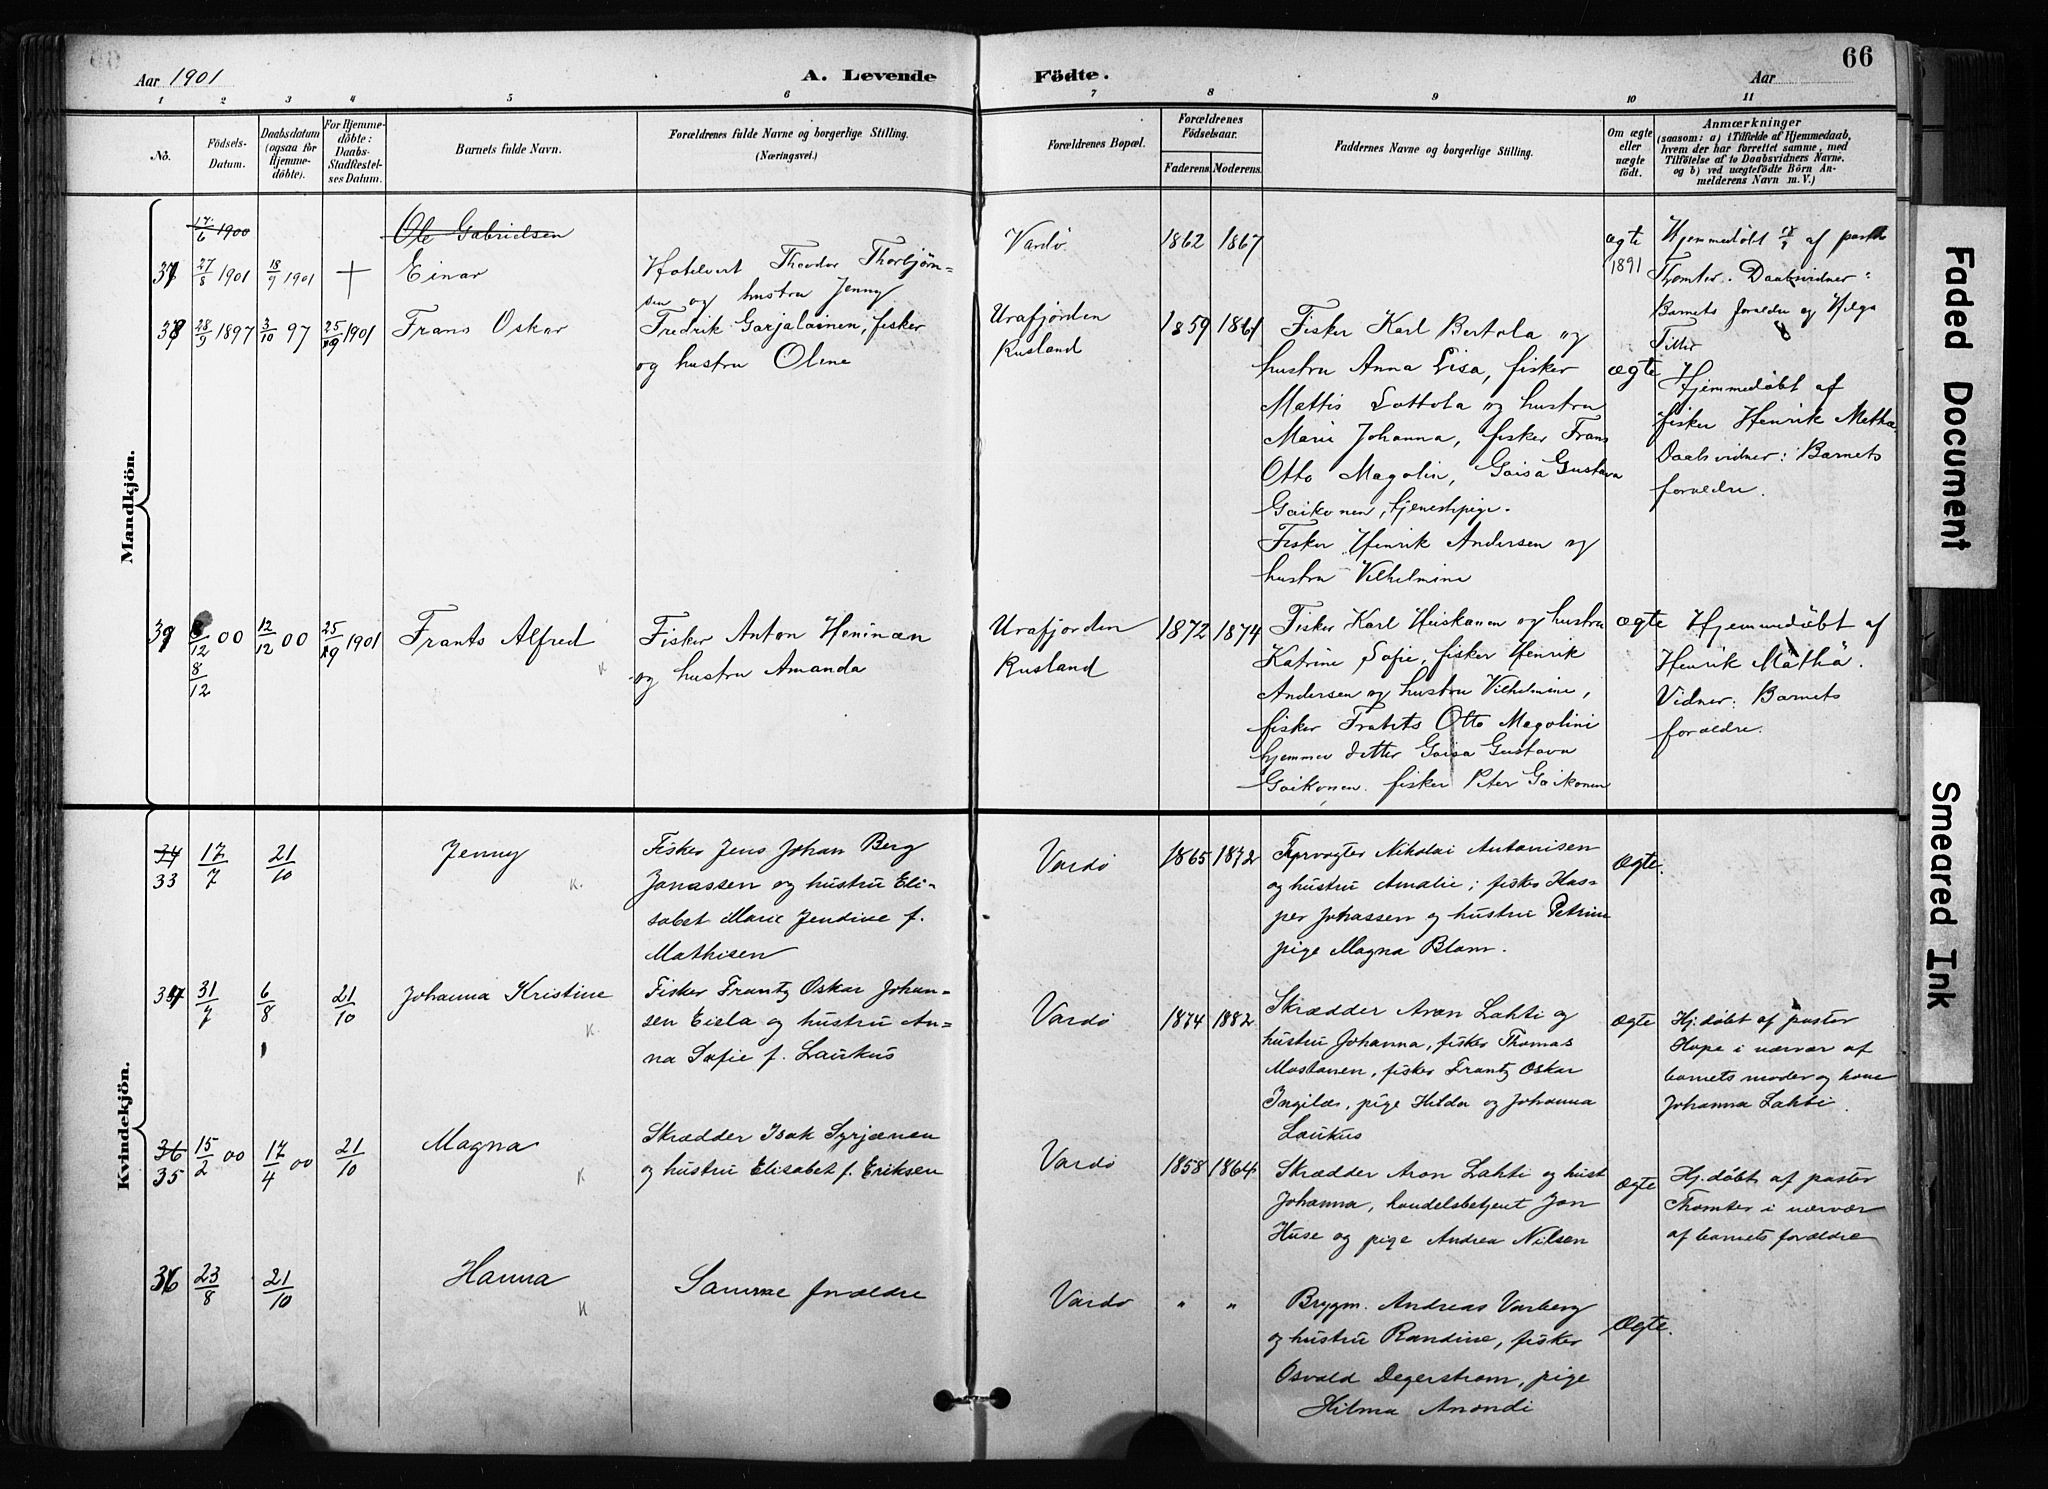 66
Aar 1901
A. Levende
Födte.
Aar
1 2 3 4 5 6 7 8 9 10 11
No.
Födsels-
Datum.
Daabsdatum
(ogsaa for
Hjemme-
döbte).
For Hjemme-
döbte:
Daabs-
Stadfæstel-
ses Datum.
Barnets fulde Navn.
Forældrenes fulde Navne og borgerlige Stilling.
(Næringsvei.)
Forældrenes Bopæl.
Forældrenes
Födselsaar.
Faderens.
Moderens.
Faddernes Navne og borgerlige Stilling.
Om ægte
eller
uægte
födt.
Anmærkninger
(saasom: a) i Tilfælde af Hjemmedaab,
hvem der har forrettet samme, med
Tilföielse af to Daabsvidners Navne.
og b) ved uægtefödte Börn An-
melderens Navn m. V.)
Mandkjön.
17/6 1900
Ole Gabrielsen
37
27/8 1901
18/9 1901
+
Einar
Hotelvert Theodor Thorbjørn-
sen og hustru Jenny
Vardö.
1862
1867
ægte
1891
Hjemmedöbt 18/9 af pastor
Thomter. Daabsvidner:
Barnets forældre og Helga
38
28/9 1897
3/10 97
25/9 1901
Frans Oskar
Fredrik Garjalainen, fisker
og hustru Olene
Urafjorden
Rusland
1859
1861
Fisker Karl Bertola og
hustru Anna Lisa, fisker
Mattis Lottola og hustru
Marie Johanna, fisker Frans
Otto Magolin, Gaisa Gustava
Gaikonen, tjenestepige.
Fisker Henrik Andersen og
hustru Vilhelmine
ægte
Hjemmedöbt af
fisker Henrik Metha.
Daabsvidner: Barnets
forældre.
39
8/12 00
8/12
12/12 00
25/9 1901
Frants Alfred
K
Fisker Anton Heninæn
og hustru Amanda
Urafjorden
Rusland
1872
1874
Fisker Karl Heiskanen og hustru
Katrine Sofie, fisker Henrik
Andersen og hustru Vilhelmine,
fisker Frants Otto Magolini
hjemmev. datter Gaisa Gustava
Gaikonen. fisker Peter Gaikonen
Ægte
Hjemmedöbt af
Henrik Mäthä.
Vidner: Barnets
forældre.
Kvindekjön.
34
33
17/7
21/10
Jenny
K.
Fisker Jens Johan Berg
Jonassen og hustru Eli-
sabet Marie Jendine f.
Mathisen
Vardö
1865
1872
Fyrvogter Nikolai Antonisen
og hustru Amalie; fisker Kas-
per Johassen og hustru Petrine
pige Magna Blom.
Ægte.
34
31/7
6/8
21/10
Johanna Kristine
K
Fisker Frantz Oskar Johan-
sen Eisla og hustru An-
na Sofie f. Laukus
Vardö
1874
1882
Skrædder Aron Lahti og
hustru Johanna, fisker Thomas
Mostanen, fisker Frantz Oskar
Ingilæ, pige Hilda og Johanna
Laukus
Ægte
Hj.döbt af pastor
Hope i nærvær af
barnets moder og kone
Johanna Lahti.
36
35
15/2 00
17/4 00
21/10
Magna
K
Skrædder Isak Syrjænen
og hustru Elisabet f. Eriksen
Vardö
1858
1864
Skrædder Aron Lahti og hust
Johanna, handelsbetjent Jon
Huse og pige Andrea Nilsen
Ægte
Hj.döbt af pastor
Thomter i nærvær
af barnets forældre
36
23/8
21/10
Hanna
K
Samme forældre
Vardö
"
"
Brygm. Andreas Varberg
og hustru Randine, fisker
Osvald Degerstrom, pige
Hilma Anondi
Ægte.
Faded Document
Smeared Ink